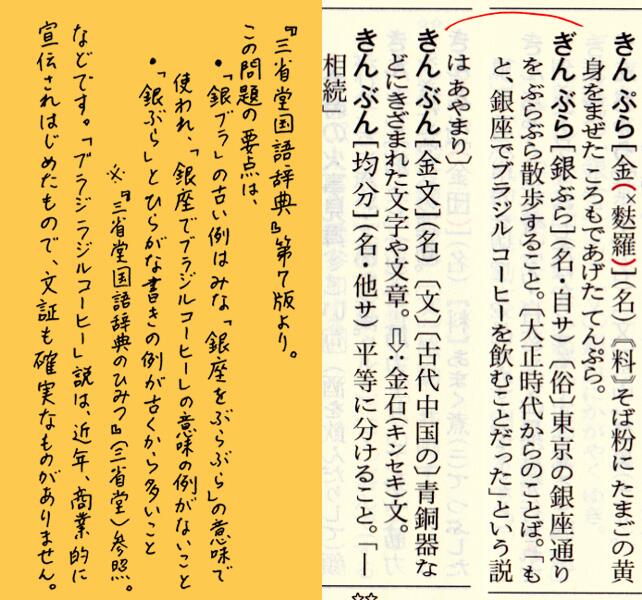 きんぷら[金(×麩羅)](名)〘料〙そば粉に たまごの黄
身をまぜた ころもであげた てんぷら。
ぎんぶら[銀ぶら](名・自サ)〔俗〕東京の銀座通り
をぶらぶら散歩すること。〔大正時代からのことば。「も
と、銀座でブラジルコーヒーを飲むことだった」という説
はあやまり〕
きんぶん[金文](名)〔文〕〔古代中国の〕青銅器な
どにきざまれた文字や文章。⇨:金石(キンセキ)文。
きんぶん[均分](名・他サ)平等に分けること。「―
相続」
『三省堂国語辞典』第7版より。
この問題の要点は、
•「銀ブラ」の古い例はみな「銀座をぶらぶら」の意味で
使われ、「銀座でブラジルコーヒー」の意味の例がないこと
•「銀ぶら」とひらがな書きの例が古くから多いこと
※『三省堂国語辞典のひみつ』(三省堂)参照。
などです。「ブラジラジルコーヒー」説は、近年、商業的に
宣伝されはじめたもので、文証も確実なものがありません。